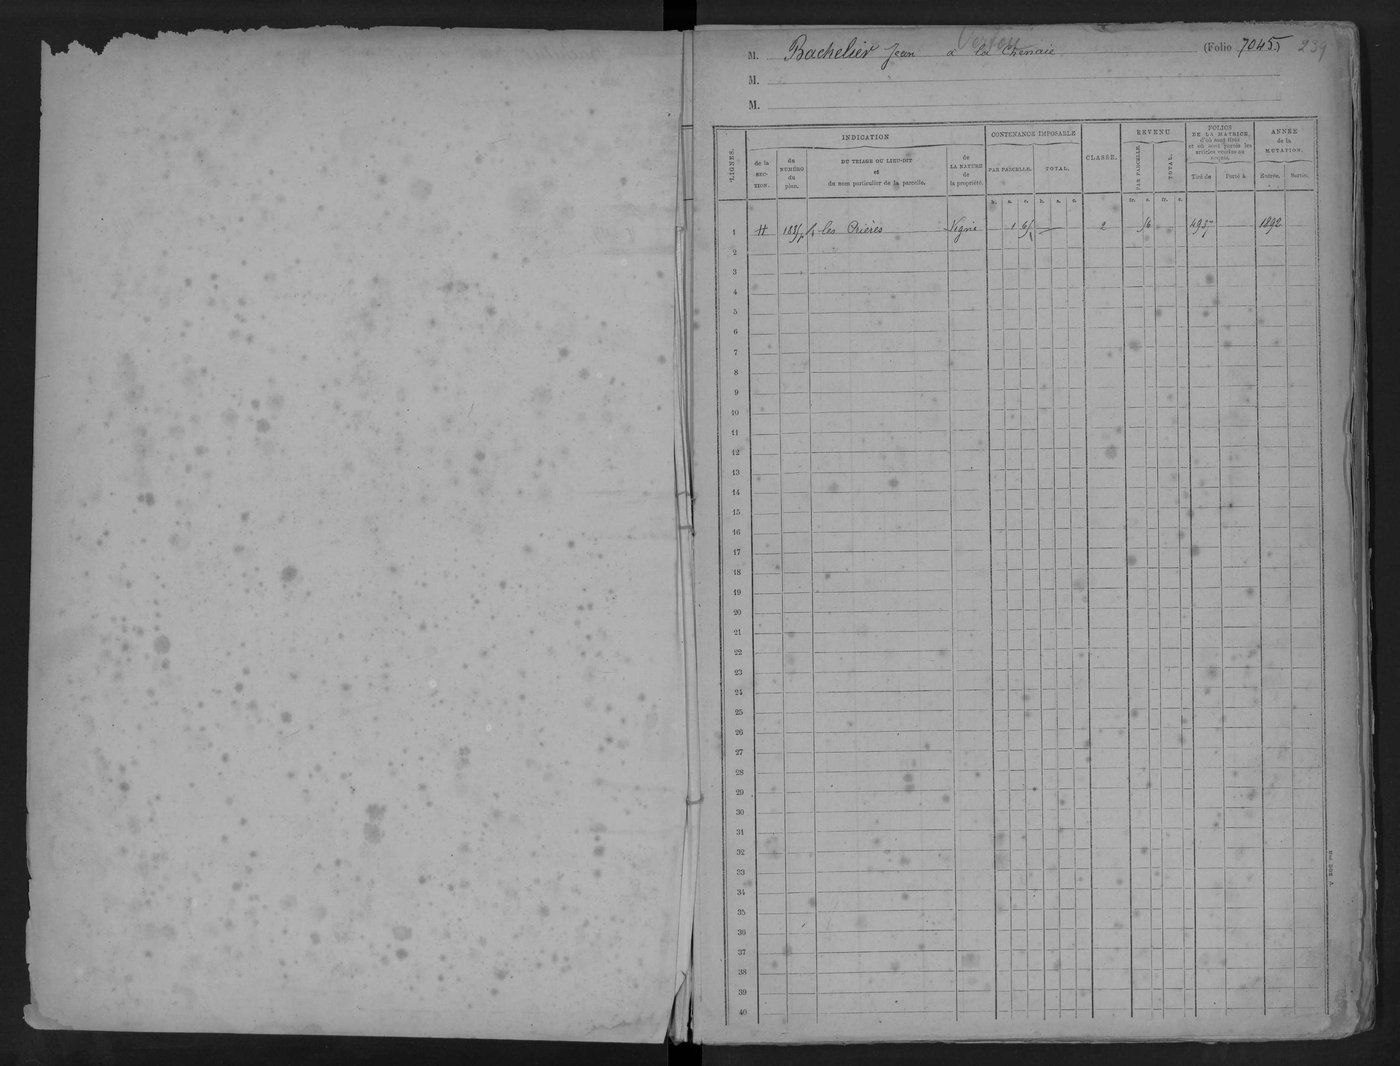 M. Bachelier Jean à la Chenaie (Folio 7045) 239
M.
M.
LIGNES.
INDICATION
de la SECTION.
du NUMÉRO du plan.
DU TRIAGE OU LIEU-DIT et du nom particulier de la parcelle.
de LA NATURE de la propriété.
CONTENANCE IMPOSABLE
PAR PARCELLE. TOTAL.
CLASSE.
REVENU
PAR PARCELLE. TOTAL.
FOLIOS DE LA MATRICE, d'où sont tirés et où sont portés les articles vendus ou acquis.
Tiré de Porté à
ANNÉE de la MUTATION.
Entrée. Sortie.
h. a. c. h. a. c. fr. c. fr. c.
1 H les Prières Vigne 1 2 4957 1892
2
3
4
5
6
7
8
9
10
11
12
13
14
15
16
17
18
19
20
21
22
23
24
25
26
27
28
29
30
31
32
33
34
35
36
37
38
39
40